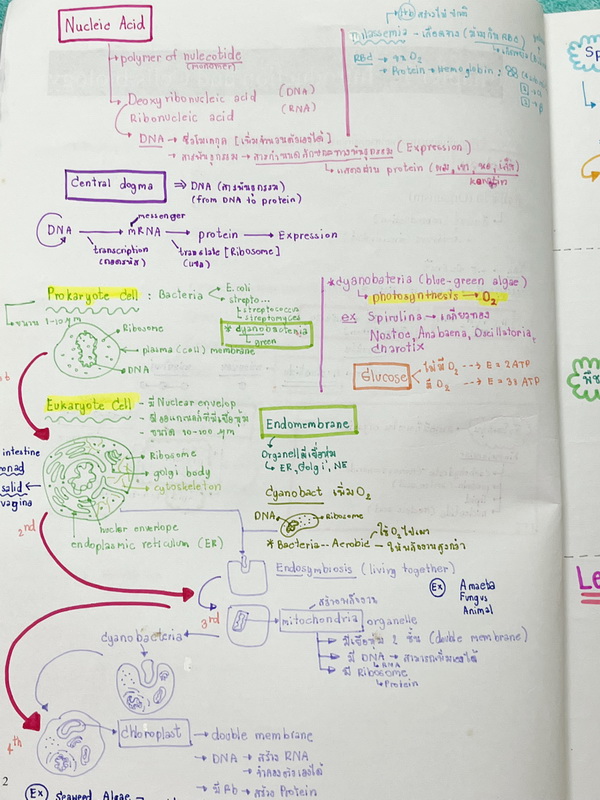 Nucleic Acid
polymer of nulecotide
(monomer)
Deoxyribonucleic acid (DNA)
Ribonucleic acid (RNA)
DNA → ชีวโมเลกุล [เพิ่มจำนวนตัวเองได้]
→ สารพันธุกรรม → สารกำหนดลักษณะทางพันธุกรรม (Expression)
แสดงผ่าน protein (ผม, เขา, ขน, เล็บ)
keratin
สร้างไม่ปกติ
Thalassemia - เลือดจาง
RBC → ขน O₂
Protein → Hemoglobin
Central dogma ⇒ DNA (สารพันธุกรรม)
(from DNA to protein)
messenger
DNA → mRNA → protein → Expression
transcription translate [Ribosome]
(ถอดรหัส) (แปล)
Prokaryote Cell : Bacteria
E.coli
strepto...
streptococcus
streptomyces
ขนาด 1-10 μm
* cyanobacteria
green
Ribosome
plasma (cell) membrane
DNA
* cyanobateria (blue-green algae)
photosynthesis → O₂
ex Spirulina → เกลียวทอง
Nostoc, Anabaena, Oscillatoria,
charotix
Glucose
ไม่มี O₂ --→ E = 2 ATP
มี O₂ --→ E = 38 ATP
Eukaryote Cell - มี Nuclear envelop
- มีออแกเนลล์ที่มีเยื่อหุ้ม
- ขนาด 10-100 μm
Ribosome
golgi body
cytoskeleton
nucler envelope
endoplasmic reticulum (ER)
intestine
vagina
Endomembrane
Organell มีเยื่อหุ้ม
ER, Golgi, NE
Cyanobact เพิ่ม O₂
DNA
Ribosome
* Bacteria -- Aerobic
ใช้ O₂ ไปเผา
ให้พลังงานสูงกว่า
2nd
Endosymbiosis (living together)
Ex Amoeba
Fungus
Animal
3rd
สร้างพลังงาน
mitochondria organelle
มีเยื่อหุ้ม 2 ชั้น (double membrane)
มี DNA → สามารถเพิ่มเองได้
RNA
มี Ribosome
Protein
cyanobacteria
4th
chloroplast → double membrane
→ DNA → สร้าง RNA
จำลองตัวเองได้
→ มี Rb → สร้าง Protein
2
Ex Seaweed Algae